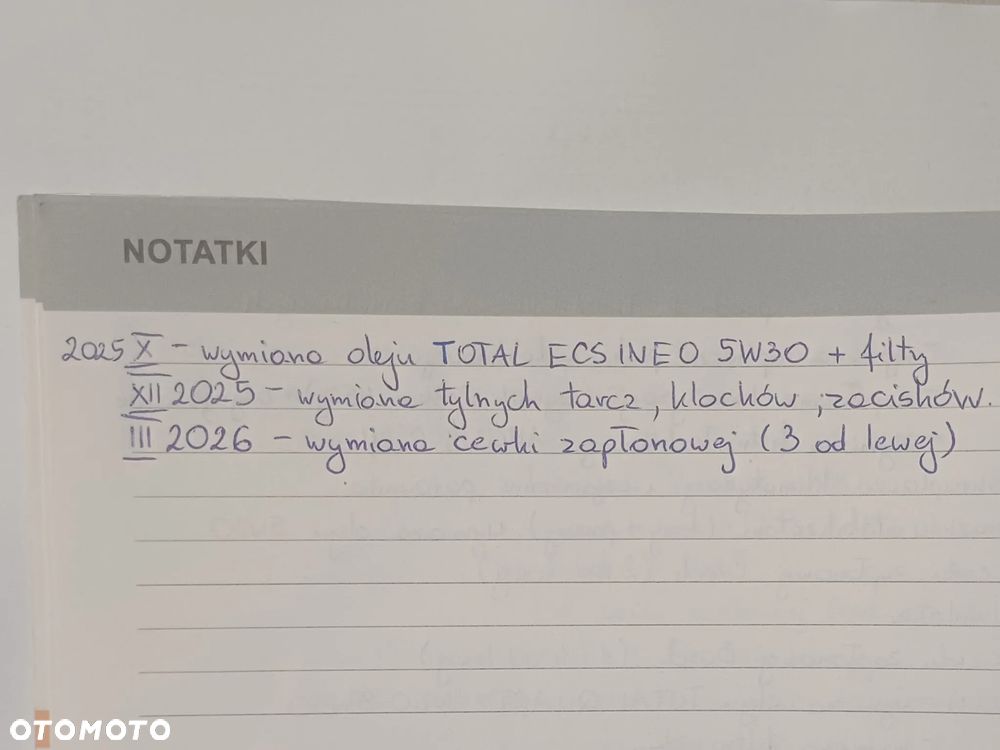 NOTATKI
2025 X - wymiana oleju TOTAL ECS INEO 5W30 + filty
XII 2025 - wymiana tylnych tarcz, klocków, zacisków.
III 2026 - wymiana cewki zapłonowej (3 od lewej)
OTOMOTO